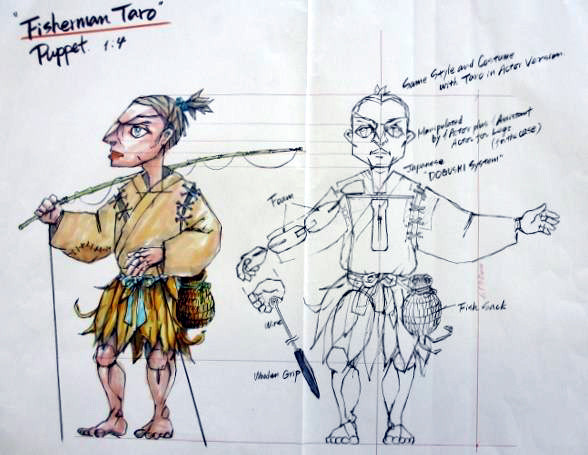 "Fisherman Taro"
Puppet. 1:4
Same Style and Costume
with Taro in Actor Version.
Manipulated
by 1 Actor plus (Assistant
Actor for Legs
(in this CASE)
Japanese
"DOGUSHI System"
Foam
Wire
Fish Sack
Wooden Grip